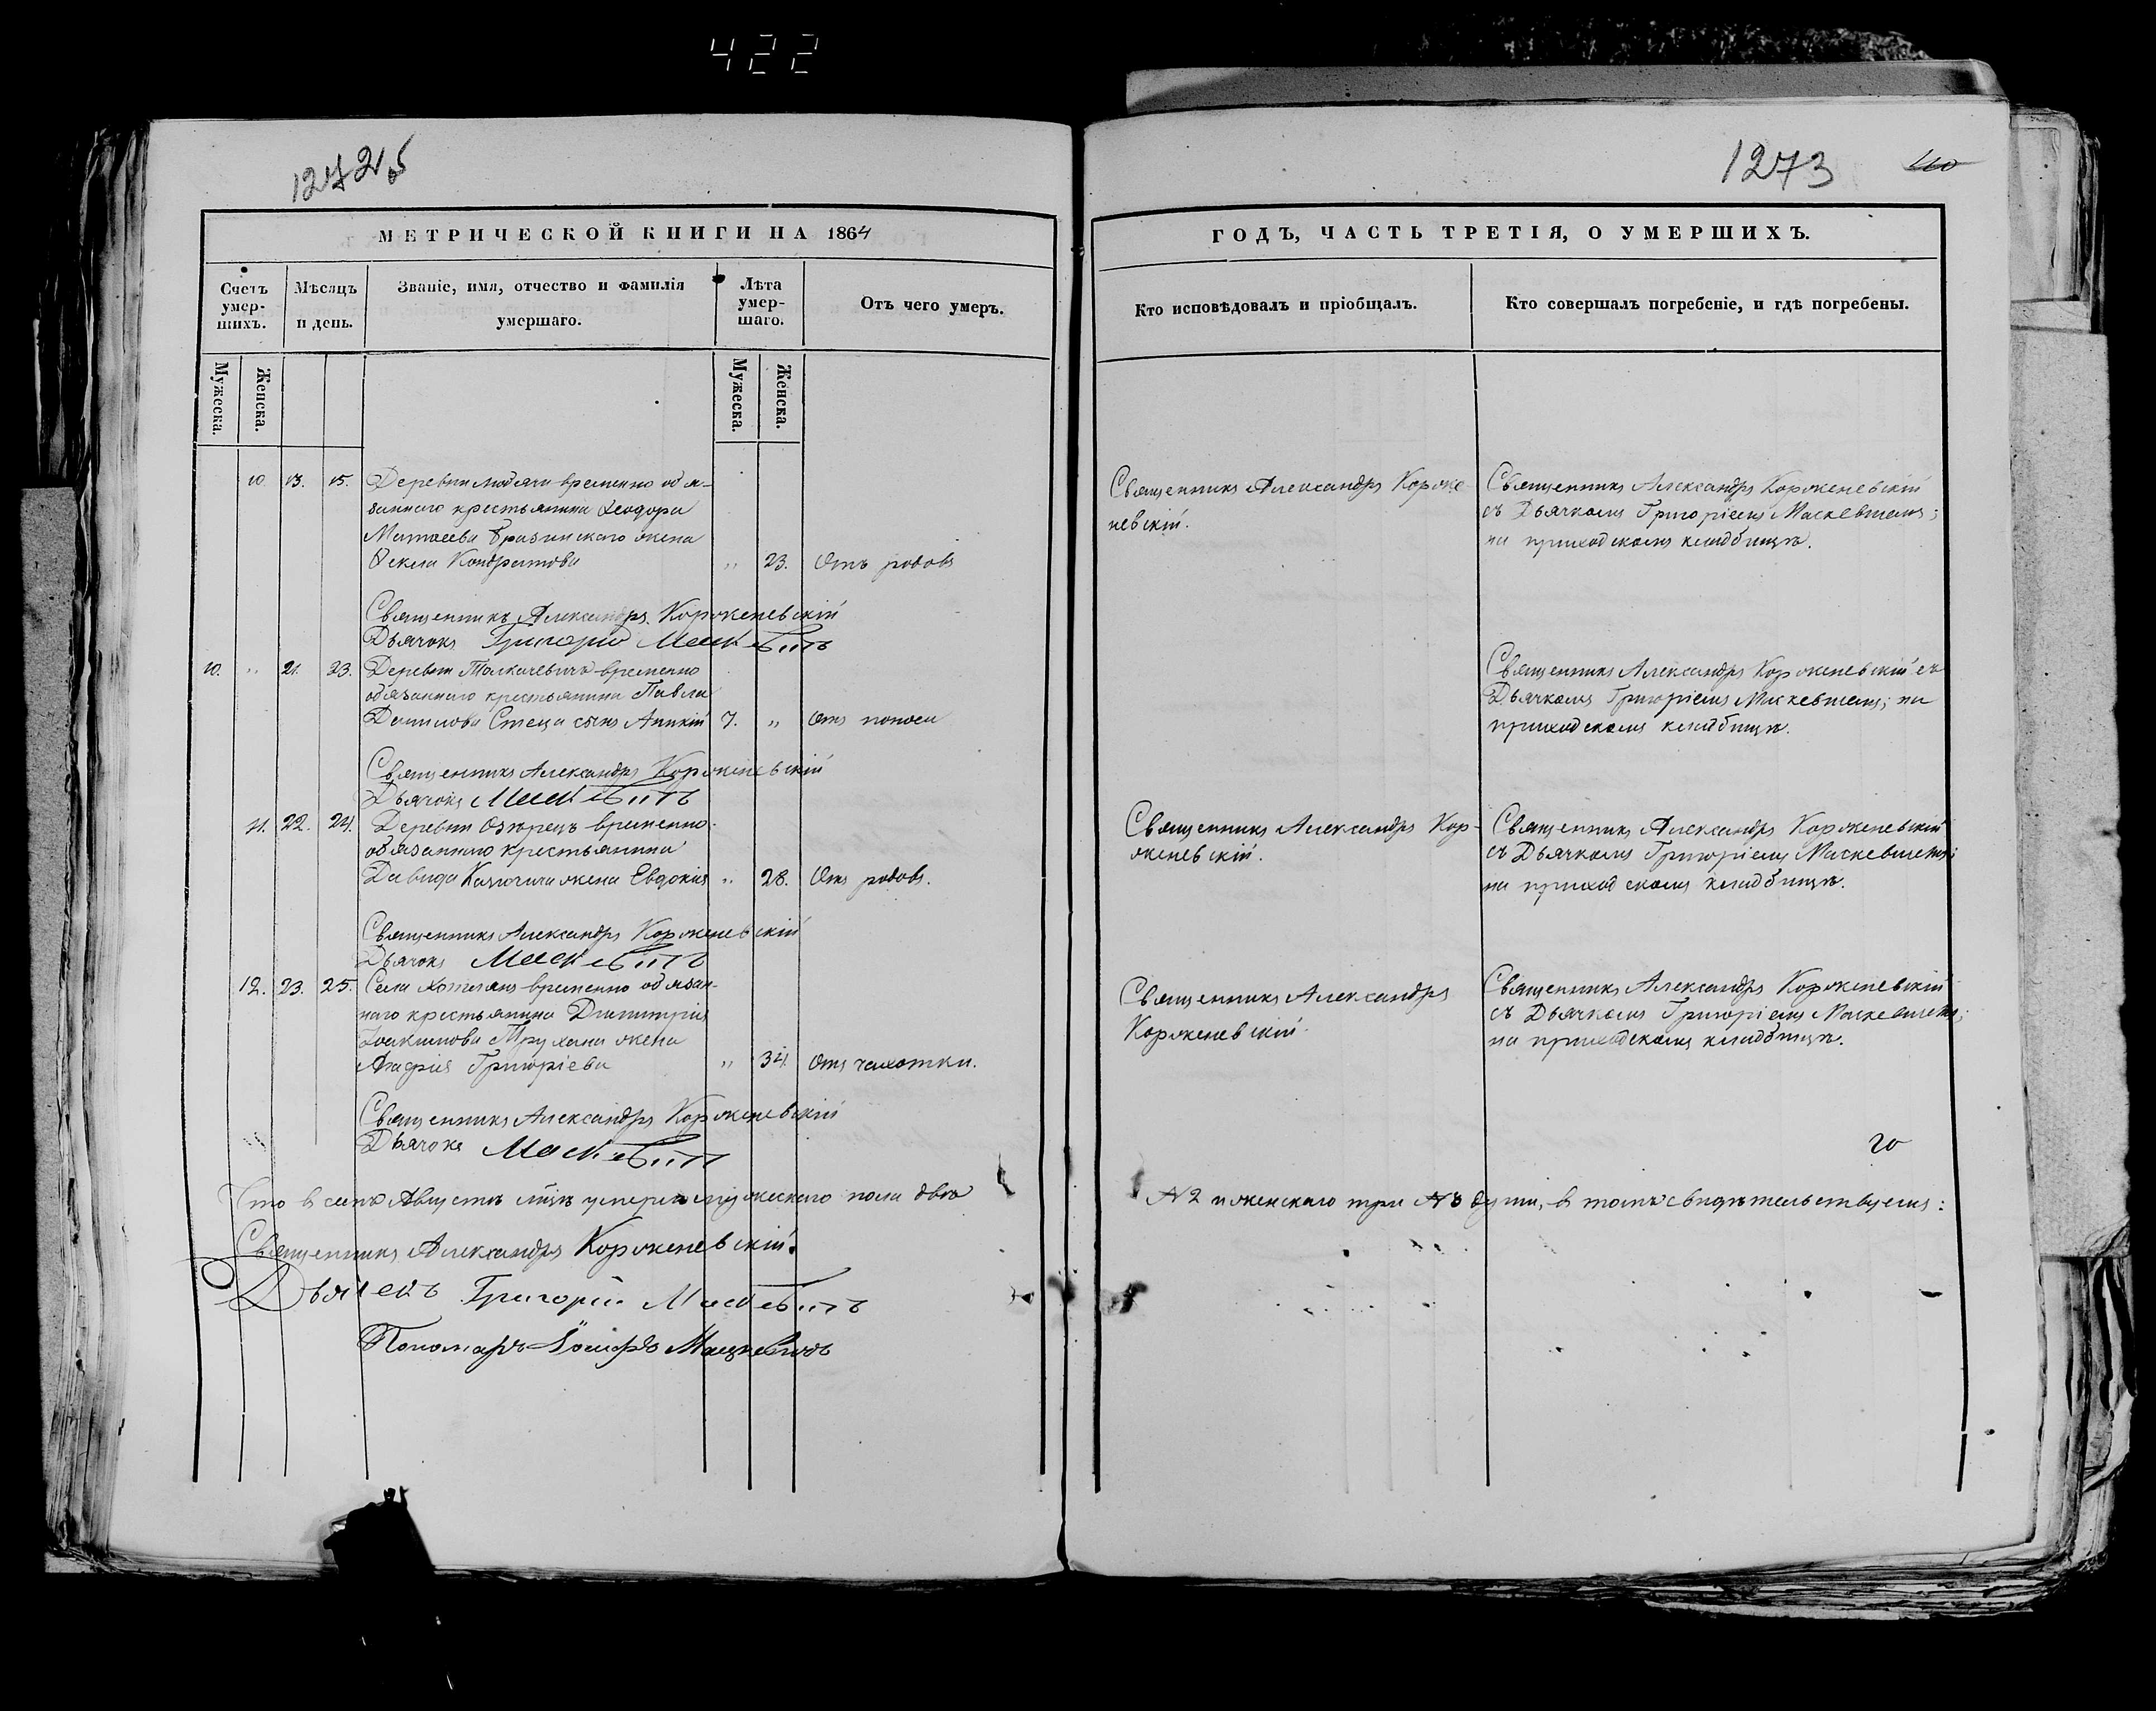 422
1272
1273
МЕТРИЧЕСКОЙ КНИГИ НА 1864
ГОДЪ, ЧАСТЬ ТРЕТІЯ, О УМЕРШИХЪ.
Счетъ умер-шихъ.
Мѣсяцъ и день.
Званіе, имя, отчество и фамилія умершаго.
Лѣта умер-шаго.
Отъ чего умеръ.
Кто исповѣдовалъ и пріобщалъ.
Кто совершалъ погребеніе, и гдѣ погребены.
Мужеска.
Женска.
Мужеска.
Женска.
10. 13. 15. Деревни временно обя-
заннаго крестьянина Ѳеодора
Матѳеева жена
Ѳекла Кондратова „ 23. Отъ родовъ
Священникъ Александръ Корже
невскій.
Священникъ Александръ Корженевскій
съ Дьячкомъ Григоріемъ Маскевичемъ;
на приходскомъ кладбищѣ.
Священникъ Александръ Корженевскій
Дьячокъ Григорій Маскевичъ
10. „ 21. 23. Деревни Толкачевичъ временно
обязаннаго крестьянина Павла
Данилова Стеца сынъ Аникій 7. „ Отъ поноса
Священникъ Александръ Корженевскій съ
Дьячкомъ Григоріемъ Маскевичемъ; на
приходскомъ кладбищѣ.
Священникъ Александръ Корженевскій
Дьячокъ Маскевичъ
11. 22. 24. Деревни Озерецъ временно-
обязаннаго крестьянина
Давида жена Евдокія „ 28. Отъ родовъ.
Священникъ Александръ Кор-
женевскій.
Священникъ Александръ Корженевскій
съ Дьячкомъ Григоріемъ Маскевичемъ;
на приходскомъ кладбищѣ.
Священникъ Александръ Корженевскій
Дьячокъ Маскевичъ
12. 23. 25. Села Хотлянъ временно обязан-
наго крестьянина Димитрія
Іоакимова Трухана жена
Марія Григоріева „ 34. Отъ чахотки.
Священникъ Александръ
Корженевскій.
Священникъ Александръ Корженевскій
съ Дьячкомъ Григоріемъ Маскевичемъ;
на приходскомъ кладбищѣ.
Священникъ Александръ Корженевскій
Дьячокъ Маскевичъ
Что в семъ Августѣ умерло мужескаго пола двѣ
№ 2 и женскаго три № 3 души, в томъ свидѣтельствуемъ:
Священникъ Александръ Корженевскій.
Дьячекъ Григорій Маскевичъ
Пономарь Іосифъ Мацкевичъ